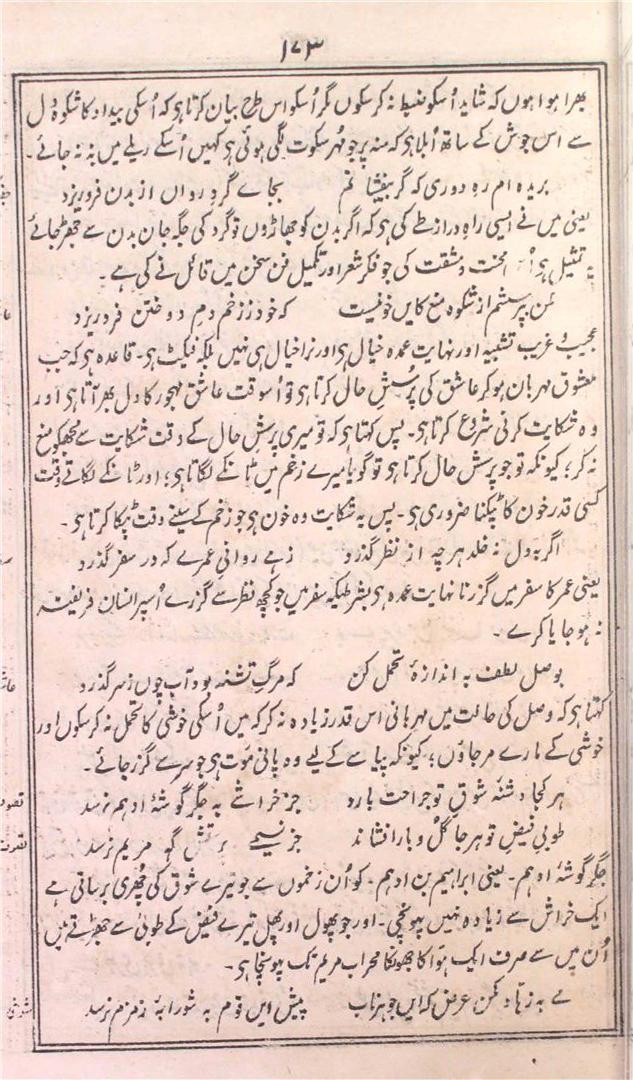 ۱۷۳
بھرا ہوا ہوں کہ شاید اُسکو ضبط نہ کر سکوں مگر اُسکو اس طرح بیان کرتا ہی کہ اُسکی بیداد کا شکوہ دل
سے اس جوش کے ساتھ اُبلا ہی کہ منہ پر جو مُہرِ سکوت لگی ہوئی ہی کہیں اُسکے ریلے میں بہ نہ جائے۔
بریدہ ام رہِ دوری کہ گر بیفشانم بجاے گرد رواں از بدن فرو ریزد
یعنی میں نے ایسی راہِ دراز طے کی ہی کہ اگر بدن کو جھاڑوں تو گرد کی جگہ جان بدن سے جھڑ جائے
یہ تمثیل ہی محنت و مشقت کی جو فکرِ شعر اور تکمیلِ فنِ سخن میں قائل نے کی ہے۔
بہ پرسشم از شکوہ منع کایں خونیست کہ خود ز زخم دمِ دوختن فرو ریزد
عجیب و غریب تشبیہ اور نہایت عمدہ خیال ہی اور نرا خیال ہی نہیں بلکہ فیکٹ ہی۔ قاعدہ ہی کہ جب
معشوق مہربان ہو کر عاشق کی پُرسشِ حال کرتا ہی تو اُسوقت عاشقِ مہجور کا دل بھر آتا ہی اور
وہ شکایت کرنی شروع کرتا ہی۔ پس کہتا ہی کہ تو میری پرسشِ حال کے وقت شکایت سے مجھکو منع
نہ کر؛ کیونکہ تو جو پرسشِ حال کرتا ہی تو گویا میرے زخم میں ٹانکے لگاتا ہی؛ اور ٹانکے لگاتے وقت
کسی قدر خون کا ٹپکنا ضروری ہی۔ پس یہ شکایت وہ خون ہی جو زخم کے سیتے وقت ٹپکا کرتا ہی۔
اگر بہ دل نہ خلد ہر چہ از نظر گذرد زہے روانیِ عمرے کہ در سفر گذرد
یعنی عمر کا سفر میں گزرنا نہایت عمدہ ہی بشرطیکہ سفر میں جو کچھ نظر سے گزرے اُسپر انسان فریفتہ
نہ ہو جایا کرے۔
بوصل لطف بہ اندازۂ تحمل کن کہ مرگِ تشنہ بود آب چوں ز سر گذرد
کہتا ہی کہ وصل کی حالت میں مہربانی اس قدر زیادہ نہ کر کہ میں اُسکی خوشی کا تحمل نہ کر سکوں اور
خوشی کے مارے مر جاؤں؛ کیونکہ پیاسے کے لیے وہ پانی موت ہی جو سر سے گزر جائے۔
ہر کجا دشنۂ شوقِ تو جراحت بارد جز خراشے بہ جگر گوشۂ ادہم نرسد
طوبیِ فیضِ تو ہر جا گل و بار افشاند جز نسیمے مریم نرسد
جگر گوشۂ ادہم۔ یعنی ابراہیم بن ادہم۔ کو اُن زخموں سے جو تیرے شوق کی چھری برساتی ہے
ایک خراش سے زیادہ نہیں پہونچی۔ اور جو پھول اور پھل تیرے فیض کے طوبیٰ سے جھڑتے ہیں
اُن میں سے صرف ایک ہوا کا جھونکا محرابِ مریم تک پہونچا ہی۔
مے بہ زہاد مکن عرض کہ ایں جوہرِ ناب پیشِ ایں قوم بہ شورابۂ زمزم نرسد